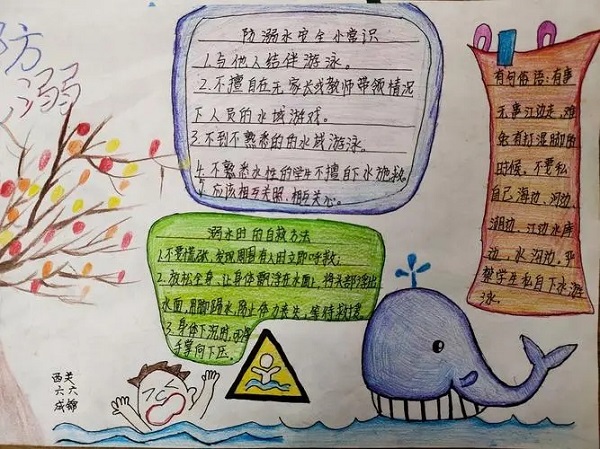 防
溺
防溺水安全小常识
1.与他人结伴游泳。
2.不擅自在无家长或教师带领情况
下人员的水域游戏。
3.不到不熟悉的的水域游泳。
4.不熟悉水性的学生不擅自下水施救
5.应该相互关照,相互关心。
溺水时的自救方法
1.不要慌张,发现周围有人时立即呼救,
2.放松全身,让身体飘浮在水面上,将头部浮出
水面,用脚踢水,防止体力丧失,等待救援
3.身体下沉时,可将
手掌向下压
有句俗语:有事
无事江边走,难
免有打湿脚的
时候,不要私
自己海边、河边、
湖边、江边水库
边、水沟边,平
学生私自下水游
泳.
西关
六六
成